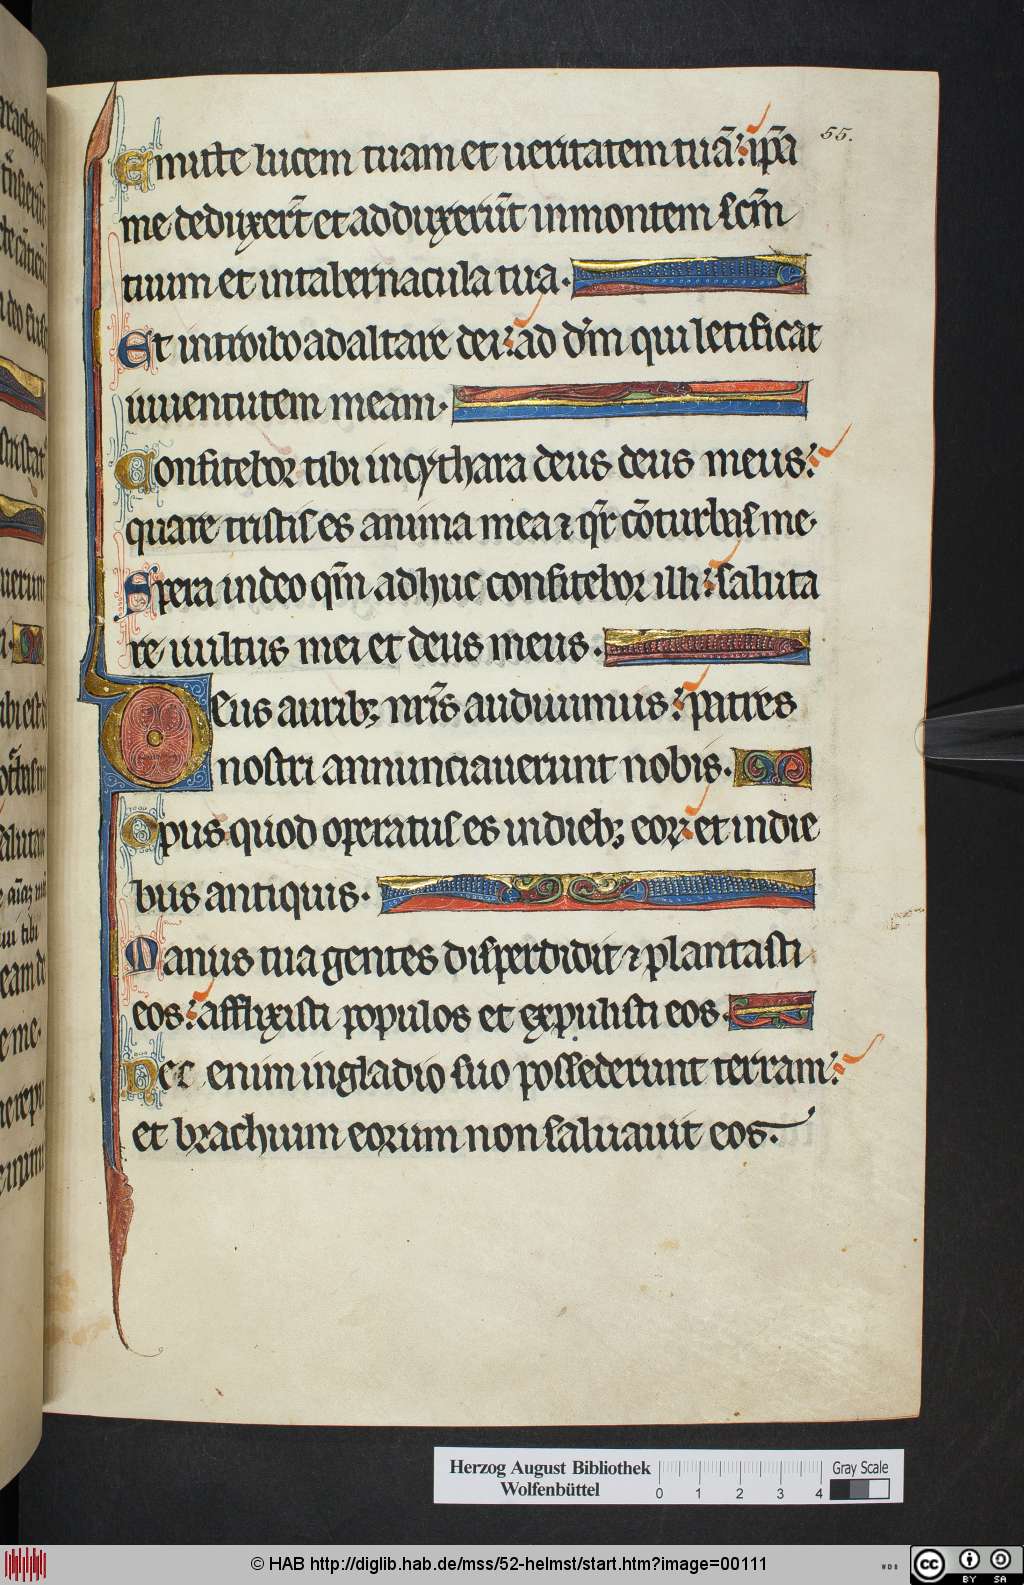 55.
Emitte lucem tuam et ueritatem tuã: ip̃a
me deduxer̃t et adduxerũt in montem sc̃m
tuum et in tabernacula tua.
Et introibo ad altare dei: ad dm̃ qui letificat
iuuentutem meam.
Confitebor tibi in cythara deus deus meus:
quare tristis es anima mea ⁊ qr̃ cõturbas me.
Spera in deo qm̃ adhuc confitebor illi: saluta
re uultus mei et deus meus.
Deus auribꝫ nr̃is audiuimus: patres
nostri annunciauerunt nobis.
Opus quod operatus es in diebꝫ eoꝝ: et in die
bus antiquis.
Manus tua gentes disperdidit ⁊ plantasti
eos: afflixisti populos et expulisti eos.
Nec enim in gladio suo possederunt terram:
et brachium eorum non saluauit eos.
Herzog August Bibliothek
Wolfenbüttel
0 1 2 3 4
Gray Scale
© HAB http://diglib.hab.de/mss/52-helmst/start.htm?image=00111
cc BY SA